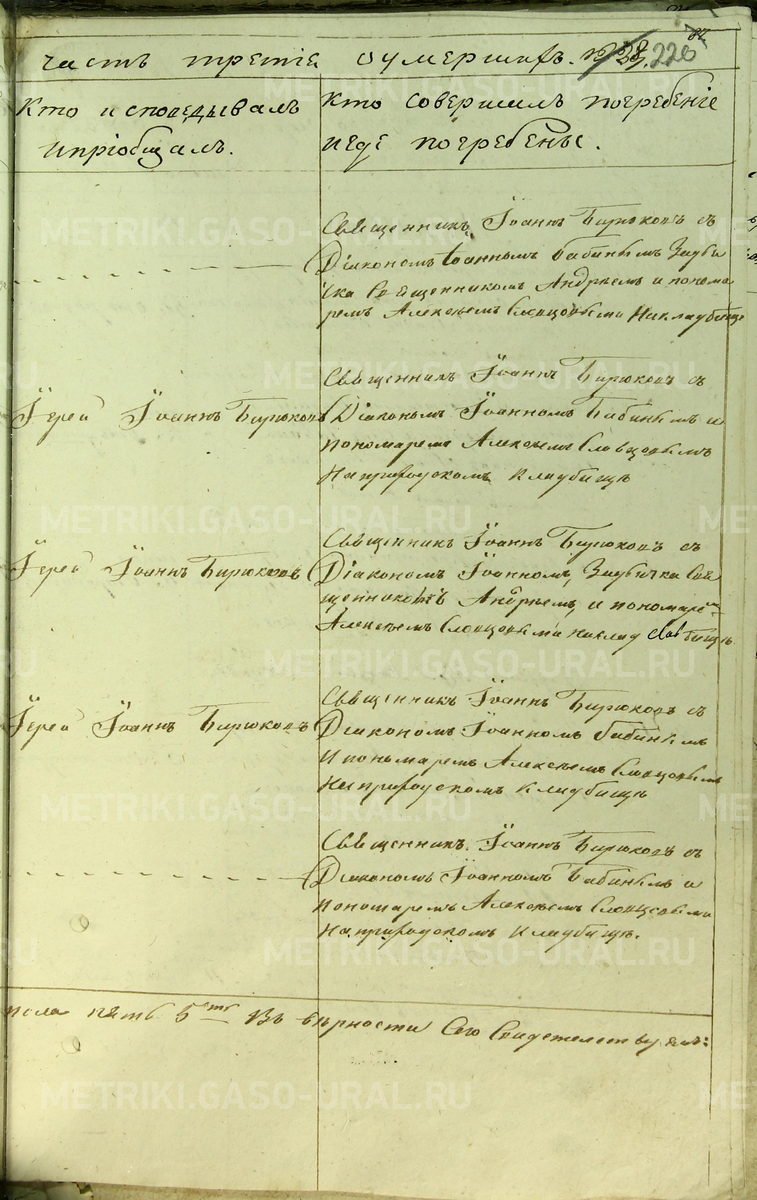 часть третіе оумершихъ. 220
Кто исповедывалъ
ипріобщалъ.
кто совершилъ погребеніе
игде погребены.
Священникъ Іоаннъ Бирюковъ съ
Діакономъ Іоанномъ Бабинымъ
Священникомъ Андрѣемъ и понома
ремъ Алексѣемъ Словцовыми
Іерей Іоаннъ Бирюковъ
Священникъ Іоаннъ Бирюковъ съ
Діакономъ Іоанномъ Бабинымъ и
пономаремъ Алексѣемъ Словцовымъ
На приходскомъ кладбищѣ
Іерей Іоаннъ Бирюковъ
Священникъ Іоаннъ Бирюковъ съ
Діакономъ Іоанномъ, Свя
щенникомъ Андрѣемъ, и пономаремъ
Алексѣемъ Словцовыми наклад бищѣ
Іерей Іоаннъ Бирюковъ
Священникъ Іоаннъ Бирюковъ съ
Діакономъ Іоанномъ Бабинымъ
И пономаремъ Алексѣемъ Словцовымъ
На приходскомъ кладбищѣ
Священникъ Іоаннъ Бирюковъ съ
Діакономъ Іоанномъ Бабинымъ и
пономаремъ Алексѣемъ Словцовыми
На приходскомъ кладбищѣ.
пять 5 Въ вѣрности Сего Свидетельствуемъ:
METRIKI.GASO-URAL.RU